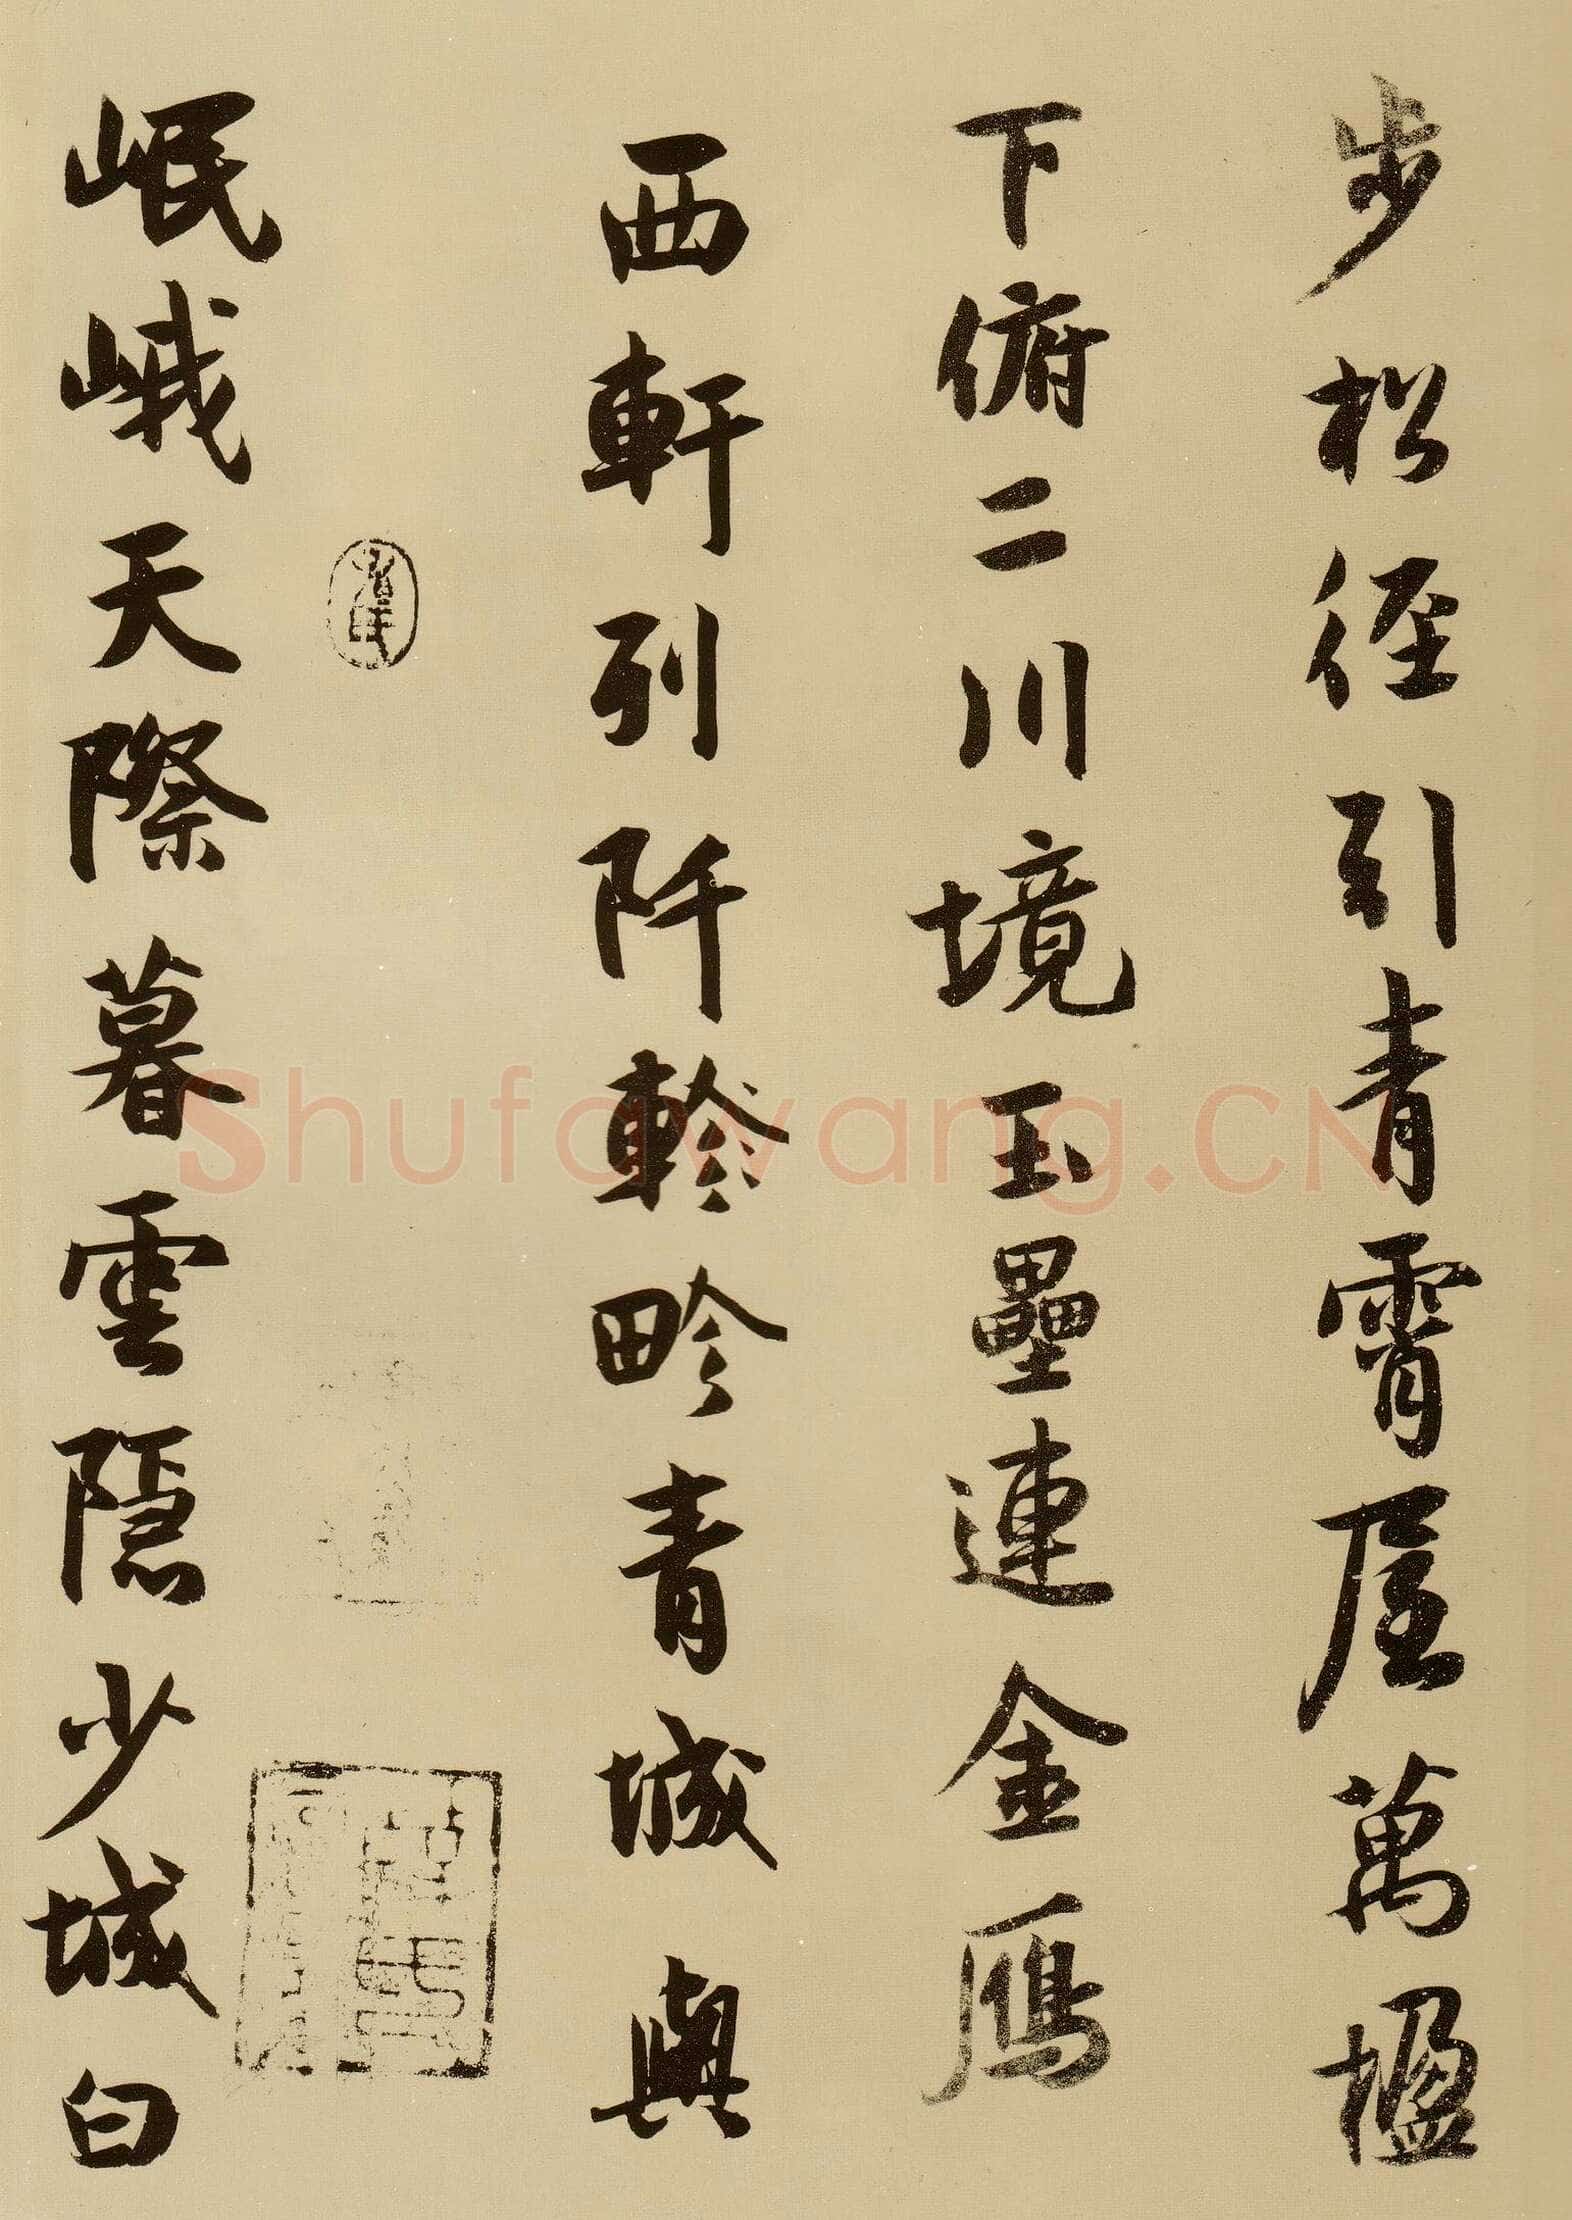 步松径引青霄屋萬楹
下俯二川境玉壘連金鴈
西軒列阡軫畛青城與
岷峨天際暮雲隱少城白
Shufawang.CN